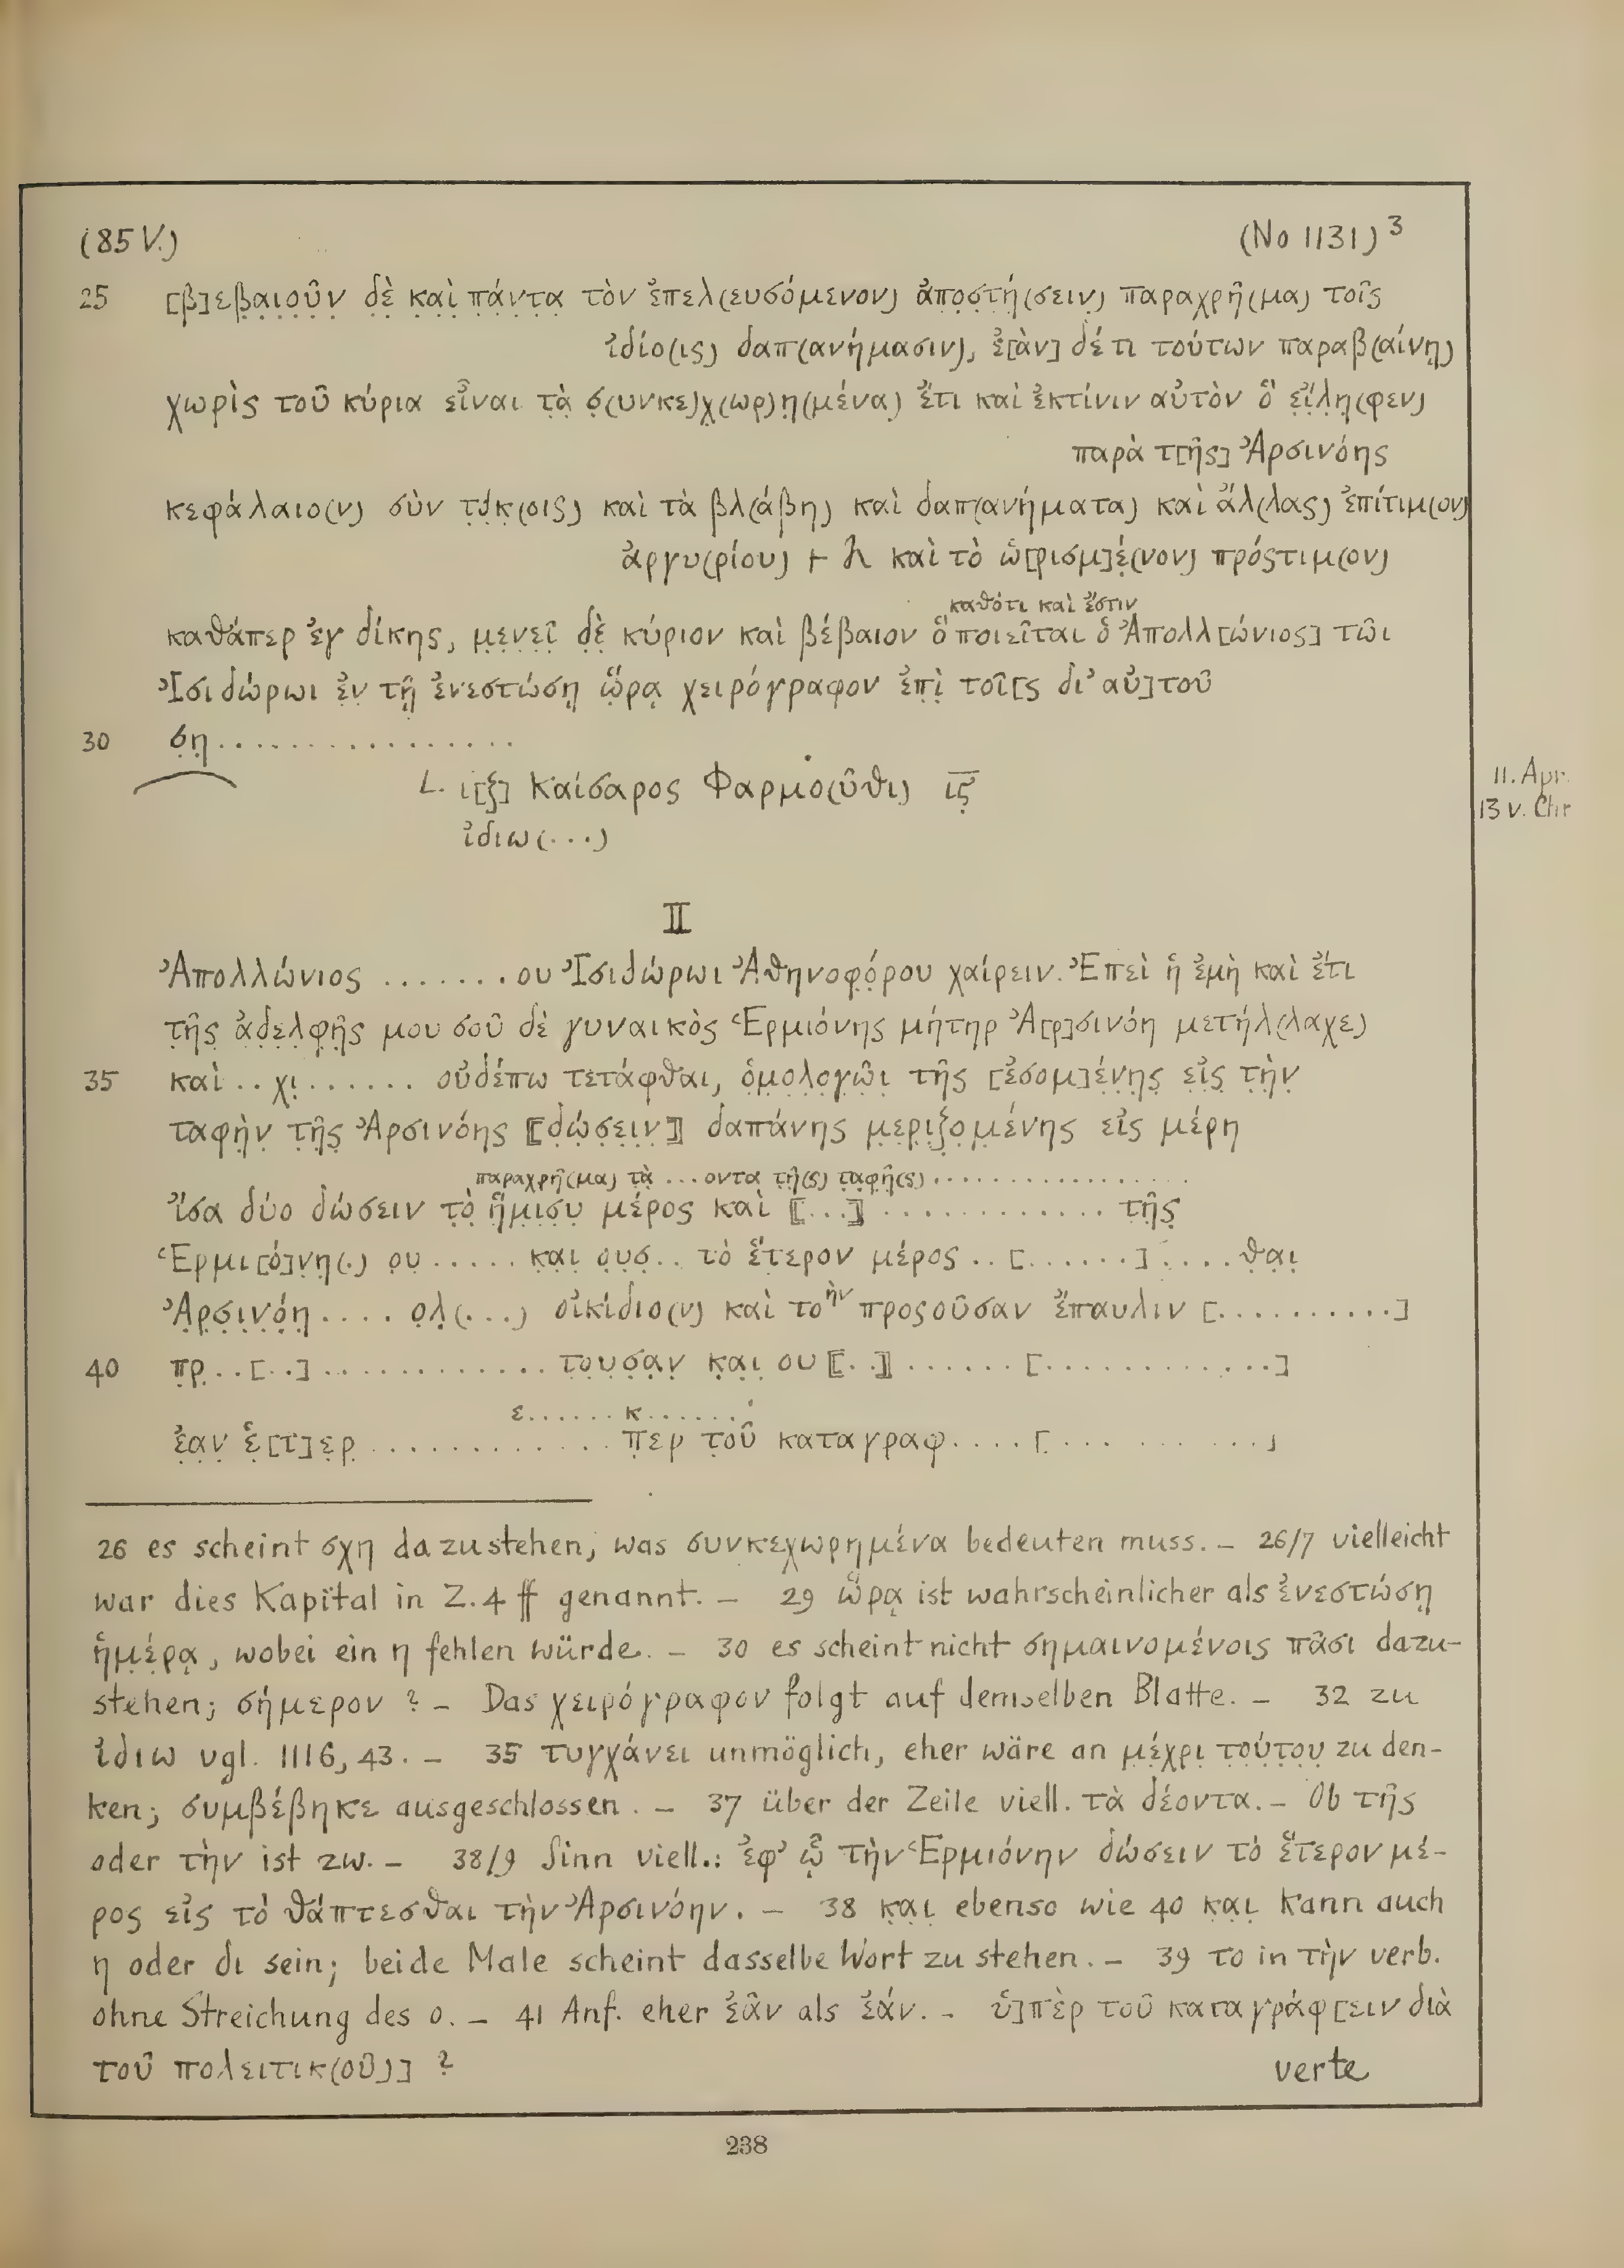 (85 V.) (No 1131) 3
25 [β]εβ̣α̣ι̣ο̣ῦ̣ν̣ δ̣ὲ̣ κ̣α̣ὶ̣ π̣ά̣ν̣τ̣α̣ τὸν ἐπελ(ευσόμενον) ἀπ̣ο̣σ̣τ̣ή̣(σειν) παραχρῆ(μα) τοῖς
ἰδίο(ις) δαπ(ανήμασιν), ἐ[ὰν] δέ τι τούτων παραβ(αίνῃ)
χωρὶς τοῦ κύρια εἶναι τ̣ὰ̣ σ̣(υνκε)χ̣(ωρ)η̣(μένα) ἔτι καὶ ἐκτίνιν αὐτὸν ὃ ε̣ἴ̣λ̣η̣(φεν)
παρὰ τ[ῆς] Ἀρσινόης
κεφάλαιο(ν) σὺν τ̣ό̣κ̣(οις) καὶ τὰ βλ(άβη) καὶ δαπ(ανήματα) καὶ ἄλ(λας) ἐπίτιμ(ον)
ἀργυ(ρίου) 𐅂 λ καὶ τὸ ὡ[ρισμ]έ̣(νον) πρόςτιμ(ον)
καθότι καὶ ἔστιν
καθάπερ ἐγ δίκης, μ̣ε̣ν̣ε̣ῖ̣ δ̣ὲ̣ κύριον καὶ βέβαιον ὃ ποιεῖται ὁ Ἀπολλ[ώνιος] τῶι
Ἰσιδώρωι ἐ̣ν̣ τῇ̣ ἐνεστώσῃ ὥ̣ρᾳ̣ χειρόγραφον ἐπ̣ὶ̣ τοῖ[ς δι’ αὐ]τοῦ
30 σ̣η̣................
L. ι[ξ] Καίσαρος Φαρμο(ῦθι) ις̣ 11. Apr.
ἰδιω(...) 13 v. Chr
II
Ἀπολλώνιος .......ου Ἰσιδώρωι Ἀθηνοφ̣ό̣ρου χαίρειν. Ἐπεὶ ἡ ἐμὴ καὶ ἔτι
τ̣ῆ̣ς̣ ἀ̣δ̣ε̣λ̣φ̣ῆ̣ς̣ μου σοῦ δὲ γυναικὸς Ἑρμιόνης μήτηρ Ἀ[ρ]σινόη μετήλ(λαχε)
35 καὶ..χι̣...... οὐδέπω τετάφθαι, ὁ̣μ̣ο̣λ̣ο̣γ̣ῶ̣ι̣ τῆς [ἐσομ]έ̣ν̣η̣ς̣ ε̣ἰ̣ς̣ τ̣ὴ̣ν̣
ταφὴ̣ν̣ τ̣ῆ̣ς̣ Ἀρσινόης ⟦δ̣ώ̣σ̣ε̣ι̣ν̣⟧ δαπάνης μ̣ε̣ρ̣ι̣ζ̣ο̣μ̣ένης εἰς μέρη
παραχρῆ(μα) τ̣ὰ̣ ...οντα τ̣ῆ̣(ς) τ̣α̣φ̣ῆ̣(ς)................
ἴσα δύο δώσειν τ̣ὸ̣ ἥ̣μ̣ι̣σ̣υ̣ μέρος καὶ ⟦...⟧............τ̣ῆ̣ς̣
Ἑρμι[ό]ν̣η̣(.) ο̣υ̣.....κ̣α̣ι̣ ο̣υ̣σ̣.. τὸ ἕτερον μέρος..[......]....θ̣α̣ι̣
Ἀ̣ρ̣σ̣ι̣ν̣ό̣η̣.... ο̣λ̣(...) οἰκίδιο(ν) καὶ το ὴν προςοῦσαν ἔπαυλιν [..........]
40 π̣ρ̣..[..]............τ̣ο̣υ̣σ̣α̣ν̣ κ̣α̣ι̣ ου⟦..⟧......[............]
ε......κ......
ἐ̣α̣ν̣ ἑ̣[τ]ε̣ρ̣............π̣ερ τ̣οῦ καταγραφ....[... ...]
26 es scheint σχη dazustehen, was συνκεχωρημένα bedeuten muss. – 26/7 vielleicht
war dies Kapital in Z. 4 ff genannt. – 29 ὥ̣ρᾳ̣ ist wahrscheinlicher als ἐνεστώσῃ
ἡ̣μ̣έ̣ρᾳ̣, wobei ein η fehlen würde. – 30 es scheint nicht σημαινομένοις πᾶσι dazu-
stehen; σήμερον ? – Das χειρόγραφον folgt auf demselben Blatte. – 32 zu
ἰδιω vgl. 1116, 43. – 35 τυγχάνει unmöglich, eher wäre an μ̣έ̣χρι̣ τ̣ο̣ύ̣τ̣ο̣υ̣ zu den-
ken; συμβέβηκε ausgeschlossen. – 37 über der Zeile viell. τὰ δέοντα. – Ob τῆς
oder τὴν ist zw. – 38/9 Sinn viell.: ἐφ’ ᾧ τὴν Ἑρμιόνην δώσειν τὸ ἕτερον μέ-
ρος εἰς τὸ θάπτεσθαι τὴν Ἀρσινόην. – 38 κ̣α̣ι̣ ebenso wie 40 κ̣α̣ι̣ kann auch
η oder δι sein; beide Male scheint dasselbe Wort zu stehen. – 39 το in τὴν verb.
ohne Streichung des ο. – 41 Anf. eher ἐᾶν als ἐάν. – ὑ]πὲρ τοῦ καταγράφ[ειν διὰ
τοῦ πολειτικ(οῦ)] ? verte
238